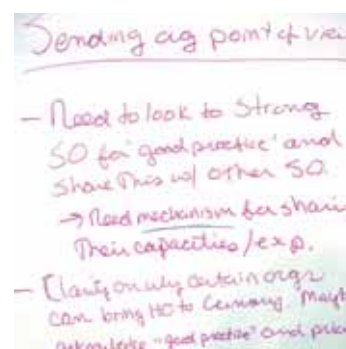 Sending ag point of view
- Need to look to strong
SO for 'good practice' and
share this w/ other SO.
→ Need mechanism for shari
their capacities/exp.
- Clarify on why certain orgs
can bring HO to Germany. Mayb
acknowledge "good practice" and